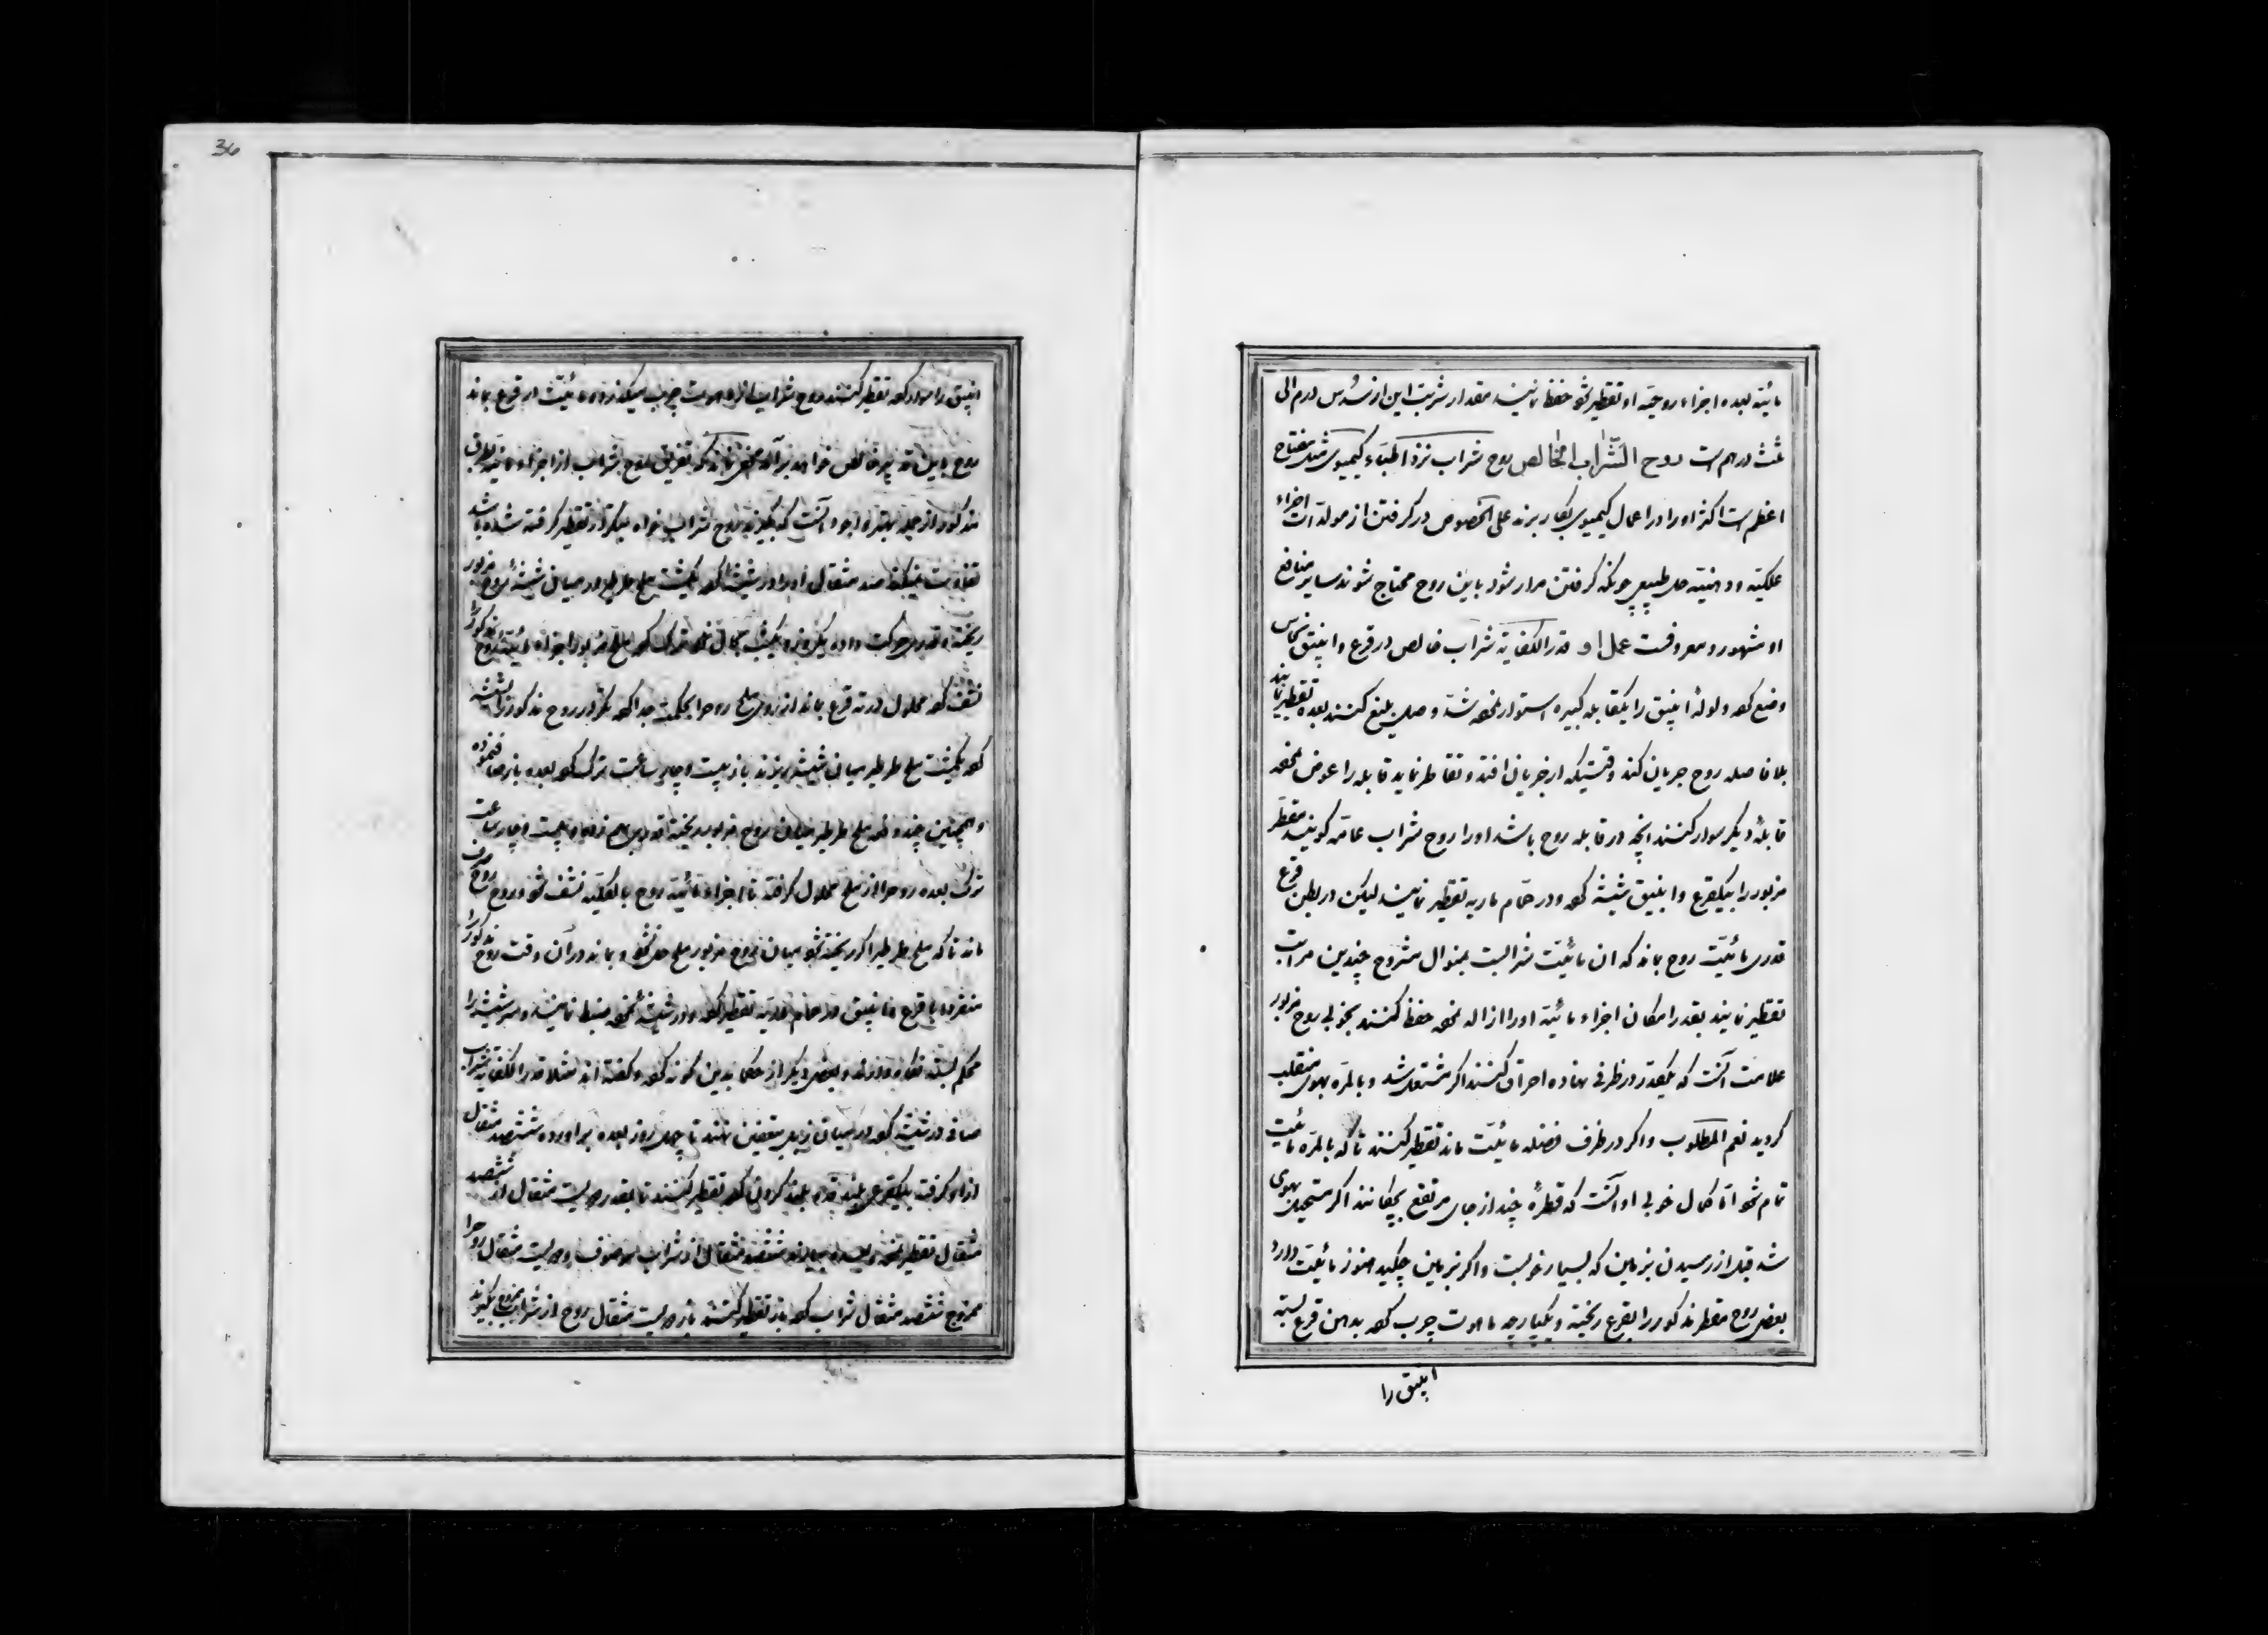 مائیّه بعده اجزاء روحیّه او تقطیر شود حفظ نمایند مقدار شربت این از سُدس درم الی
ثلث درهم است روح الشراب الخالص روح شراب نزد اطبّاء کیمیوی مثل مفتاح
اعظم است اکثر او را در اعمال کیمیوی بکار برند علی الخصوص در گرفتن از مولدات اجزاء
ملکیّه و دهنیّه حل طبیعی چونکه گرفتن مراد شود باین روح محتاج شوند سایر منافع
او مشهور و معروفست عمل او قدر الکفایه شراب خالص در قرع و انبیق نحاس
وضع کرده و لولۀ انبیق را بقابلۀ کبیره استوار نموده شدّ وصل بلیغ کنند بعده تقطیر نمایند
بلا فاصله روح جریان کند وقتیکه از جریان افتد و تقاطر نماید قابله را عوض نموده
قابلۀ دیگر سوار کنند آنچه در قابله روح باشد او را روح شراب عامّه گویند مقطّر
مزبور را بیکقرع و انبیق شیشه کرده و در حمّام ماریه تقطیر نمایند لیکن در بطن قرع
قدری مائیّت روح بماند که آن مائیّت شرابست بمنوال مشروح چندین مراتب
تقطیر نمایند بقدر امکان اجزاء مائیّه او را ازاله نموده حفظ کنند بخوبی روح مزبور
علامت آنست که یکقدر در ظرفی نهاده احراق کنند اگر مشتعل شد و بالمرّه بهوی منقلب
گردید نعم المطلوب و اگر در ظرف فضله مائیّت ماند تقطیر کنند تا که بالمرّه مائیّت
تمام شود امّا کمال خوبی او آنست که قطرۀ چند از جای مرتفع بچکانند اگر مستحیل بهوی
شد قبل از رسیدن بزمین که بسیار خوبست و اگر بزمین چکید هنوز مائیّت دارد
بعضی روح مقطر مذکور را بقرع ریخته و یکپارچه ماهوت چرب کرده بدهن قرع بسته
انبیق را
36
انبیق را سوار کرده تقطیر کنند روح شراب از ماهوت چرب میگذرد و مائیّت در قرع بماند
روح باین تدبیر خالص خواهد بر آمد مخفی نماند که تفریق روح شراب از اجزاء مائیّه بطرق
مذکوره از جمله بهتر و اجود آنست که بگیرند روح شراب خواه یکبار تقطیر گرفته شده باشد
تفاوت نمیکند صد مثقال او را در شیشۀ کرده یکمشت ملح طرطیر در میان شیشه روح مزبور
ریخته قدری حرکت داده یک روز و یکشب بحال خود ترک کرده ملح مزبور اجزاء مائیّه روح مذکور را
نشف کرده محلول در ته قرع بماند از روی ملح روح را بحکمت جدا کرده تکرار روح مذکور را بشیشه
کرده یکمشت ملح طرطیر میان شیشه بریزند باز بیست و چهار ساعت ترک کرده بعده باز صاف نموده
و همچنین چند دفعه ملح طرطیر میان روح مزبور ریخته بهم زده و بیست و چهار ساعت
ترک بعده روح را از ملح محلول گرفته تا اجزاء مائیّه روح بالکلیّه نشف شود و روح روح صرف
ماند تا که ملح طرطیر اگر ریخته شود میان روح مزبور ملح حل نشود و بماند در آن وقت روح مذکور را
منفرداً با قرع و انبیق در حمّام ماریّه تقطیر کرده و در شیشه نموده ضبط نمایند و سر شیشه را
محکم بسته نگاه دارند و بعضی دیگر از حکما بدین گونه کرده و گفته اند مثلا قدر الکفایه شراب
صافی در شیشه کرده در میان زبل بتعفین نهند تا چهل روز بعده بر آورده ششصد مثقال
از او گرفته بیکقرعی بلند کرده تقطیر کنند تا بقدر دویست مثقال از ششصد
مثقال تقطیر شود بعده بیارند ششصد مثقال از شراب موصوف و دویست مثقال روح را
ممزوج ششصد مثقال شراب کرده باز تقطیر کنند تا دویست مثقال روح از شراب ممزوج بگیرند